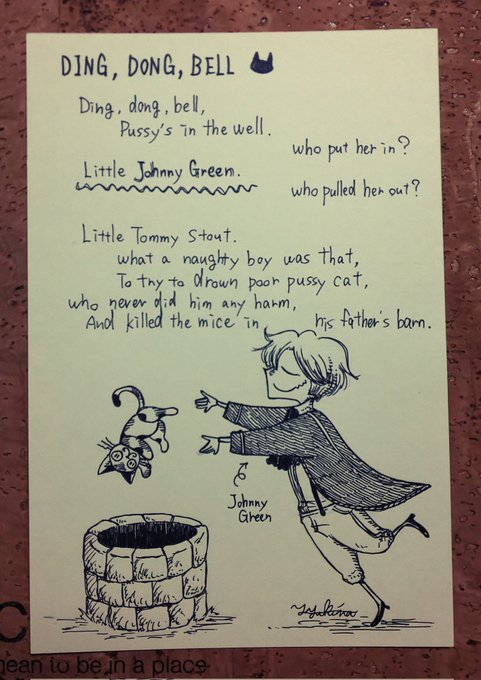 DING, DONG, BELL
Ding, dong, bell,
Pussy's in the well.
who put her in?
Little Johnny Green.
who pulled her out?
Little Tommy Stout.
what a naughty boy was that,
To try to drown poor pussy cat,
who never did him any harm,
And killed the mice in his father's barn.
Johnny
Green
ean to be in a place